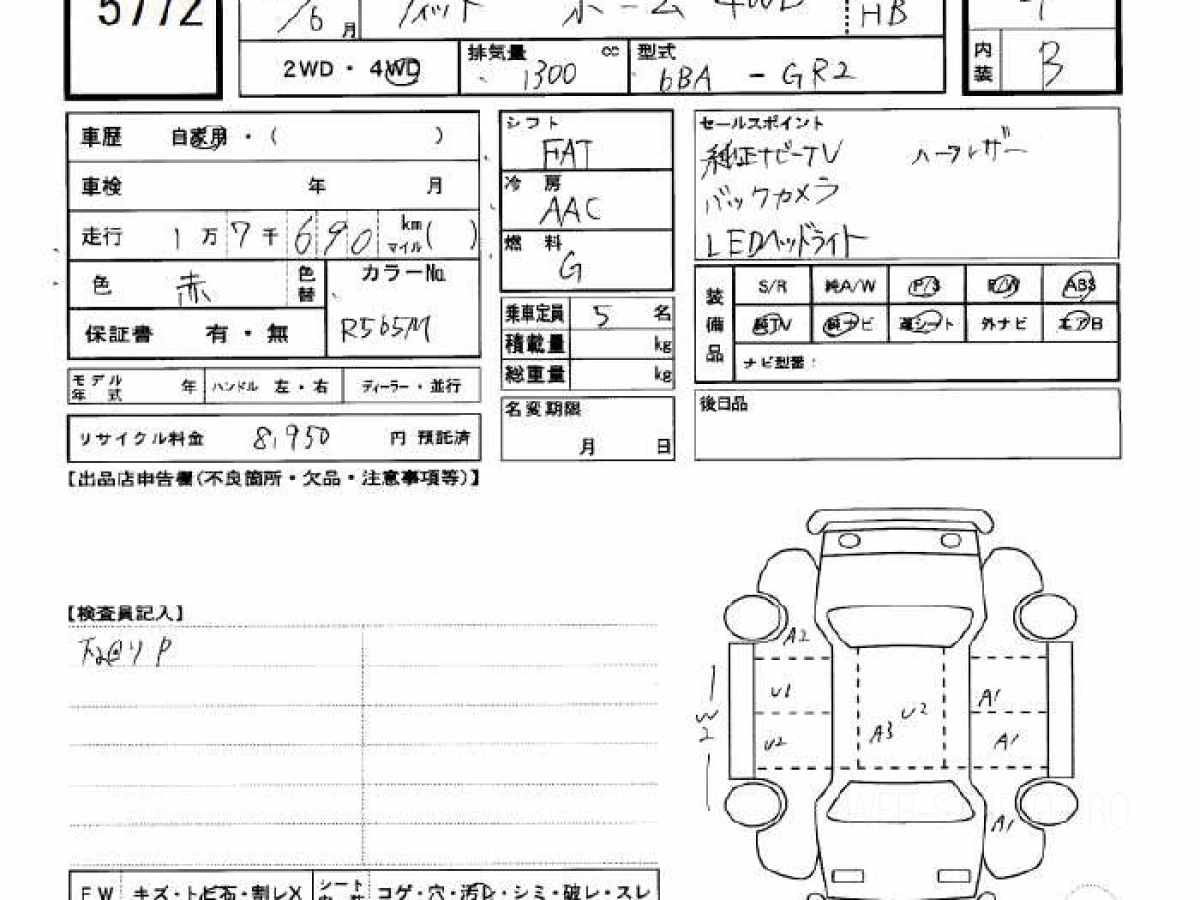 5772
/6月 フィット ホーム 4WD HB
2WD・4WD 排気量 1300 cc 型式 6BA - GR2
内装 B
車歴 自家用・( )
車検 年 月
走行 1万7千690 km マイル ( )
色 赤 色替 カラーNo. R565M
保証書 有・無
モデル年式 年 ハンドル 左・右 ディーラー・並行
リサイクル料金 8,950 円 預託済
シフト FAT
冷房 AAC
燃料 G
乗車定員 5 名
積載量 kg
総重量 kg
名変期限
月 日
セールスポイント
純正ナビ-TV ハーフレザー
バックカメラ
LEDヘッドライト
装備品 S/R 純A/W P/S P/W ABS
純TV 純ナビ 革シート 外ナビ エアB
ナビ型番:
後日品
【出品店申告欄(不良箇所・欠品・注意事項等)】
【検査員記入】
A2
U1
A1
W2
U2
A3
U2
A1
A1
WEB-S
RO
FW キズ・トビ石・割レX シート コゲ・穴・汚レ・シミ・破レ・スレ